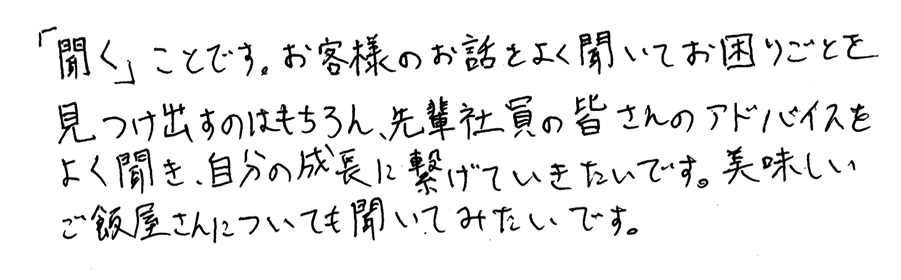 「聞く」ことです。お客様のお話をよく聞いてお困りごとを
見つけ出すのはもちろん、先輩社員の皆さんのアドバイスを
よく聞き、自分の成長に繋げていきたいです。美味しい
ご飯屋さんについても聞いてみたいです。